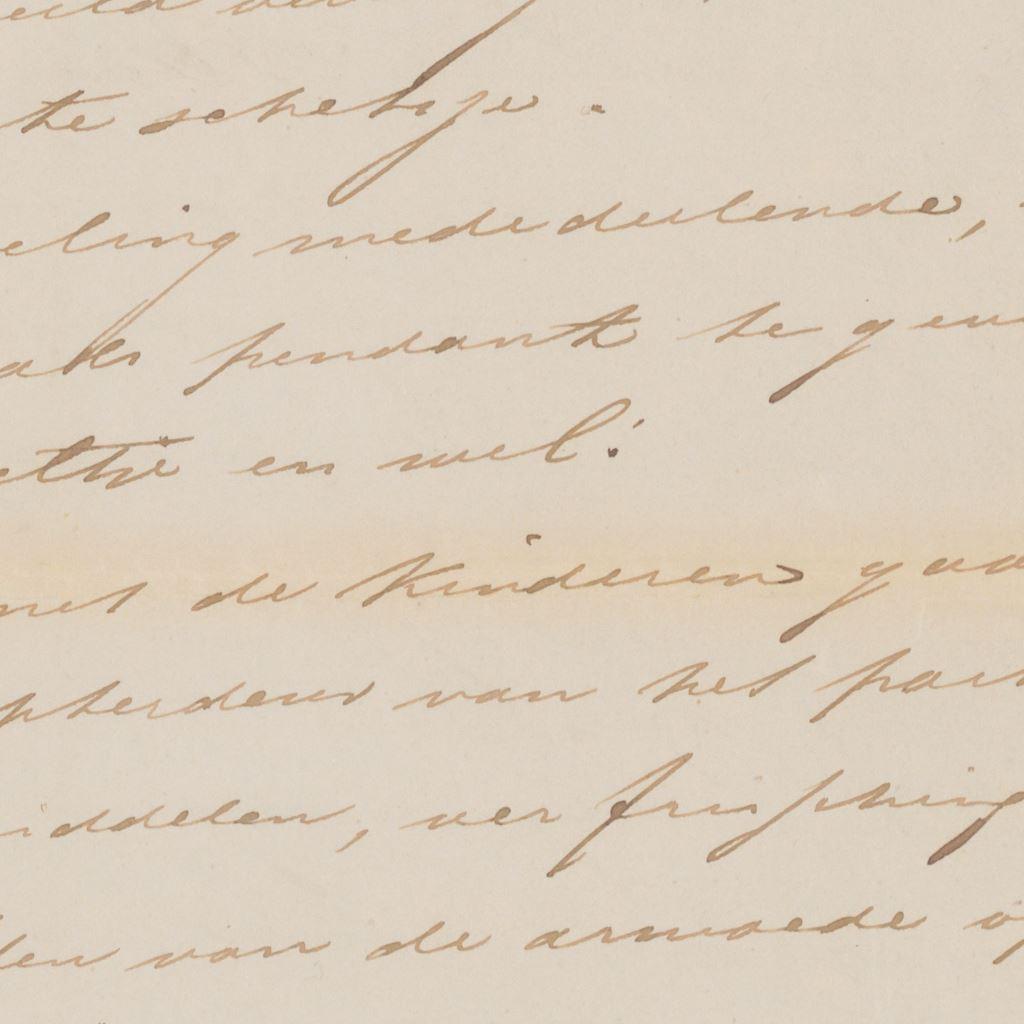 te schetsje.
eling mededeelende,
als pendant te geven
ettje en wel:
met de kinderen gaa
achterdeur van het par
iddelen, ververfrissching
len van de armoede op